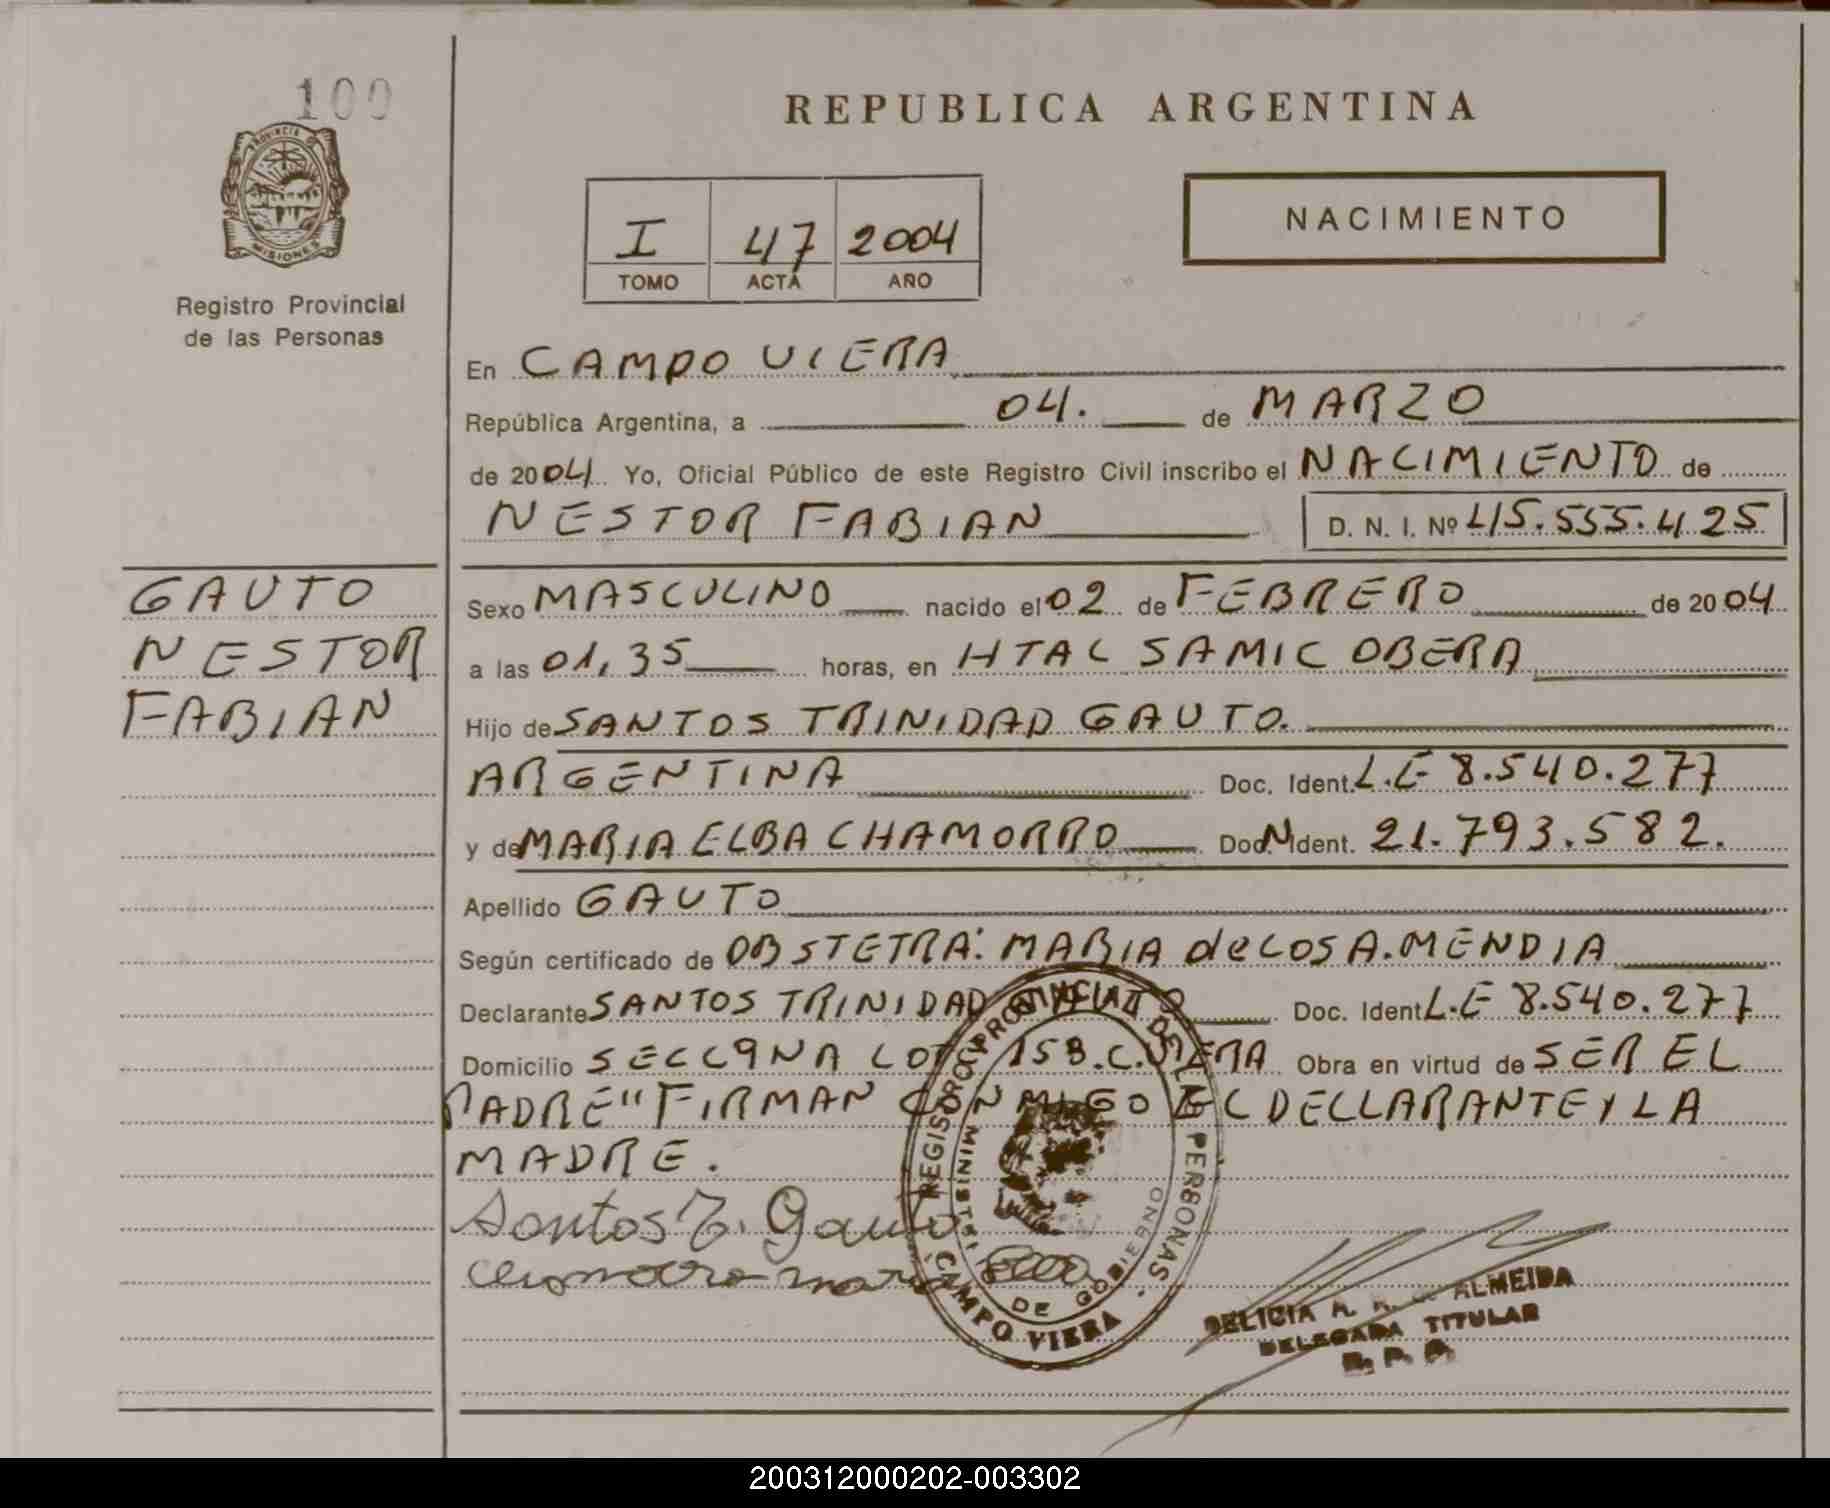 100
PROVINCIA D
MISIONES
Registro Provincial
de las Personas
REPUBLICA ARGENTINA
I 47 2004
TOMO ACTA AÑO
NACIMIENTO
En CAMPO VIERA
República Argentina, a 04. de MARZO
de 2004 Yo, Oficial Público de este Registro Civil inscribo el NACIMIENTO de
NESTOR FABIAN D. N. I. Nº 45.555.425
GAUTO
NESTOR
FABIAN
Sexo MASCULINO nacido el 02 de FEBRERO de 2004
a las 01,35 horas, en HTAL SAMIC OBERA
Hijo de SANTOS TRINIDAD GAUTO.
ARGENTINA Doc. Ident. L.E 8.540.277
y de MARIA ELBA CHAMORRO Doc. N Ident. 21.793.582.
Apellido GAUTO
Según certificado de OBSTETRA: MARIA de LOS A. MENDIA
Declarante SANTOS TRINIDAD GAUTO Doc. Ident L.E 8.540.277
Domicilio SECC 9NA LOTE 158.C.VIERA Obra en virtud de SER EL
PADRE" FIRMAN CONMIGO EL DECLARANTE Y LA
MADRE.
Santos T. Gauto
maria
REGISTRO PROVINCIAL DE LAS PERSONAS
MINISTERIO DE GOBIERNO
CAMPO VIERA
DELICIA A. ALMEIDA
DELEGADA TITULAR
R. P. P.
200312000202-003302